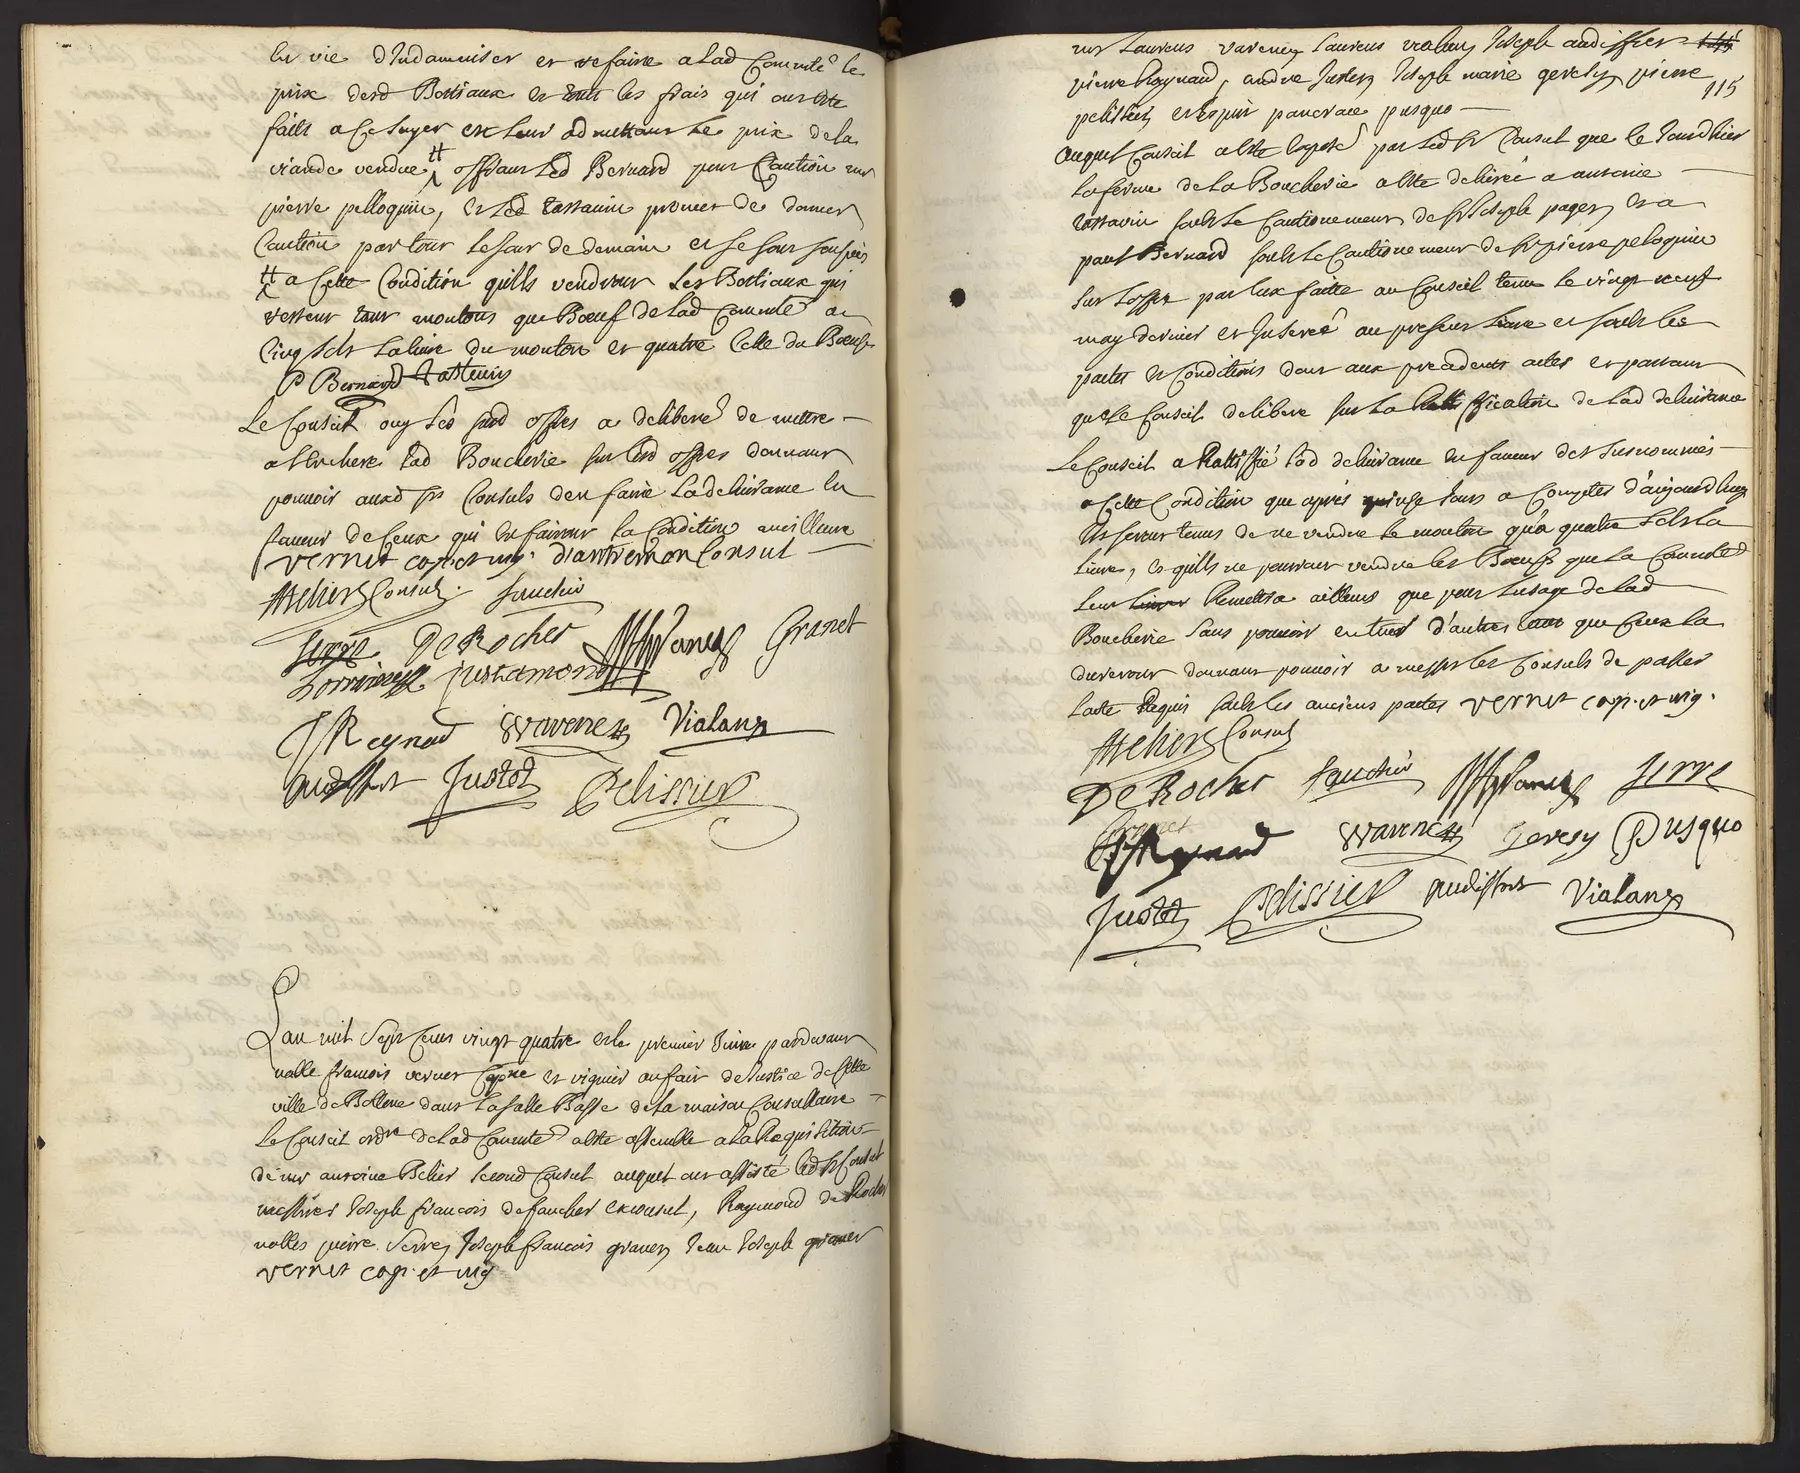 en vie d'Indamniser et refaire a lad Commté le
prix desd Bestiaux et tout les frais qui ont esté
faits a ce sujet en leur admettant le prix de la
viande vendue # offrant led Bernard pour Caution mr
pierre pelloquin, et led tastavin promet de donner
Caution par tout le jour de demain et se sont soussignés
# a Cette Condition quils vendront les Bestiaux qui
restent tant moutons que Boeuf de lad Commté a
Cinq sols la livre du mouton et quatre Celle du Boeuf
P Bernard Tastevin
Le Conseil ouy les susd offres a deliberé de mettre
a l'enchere lad Boucherie sur lesd offres donnant
pouvoir auxd srs Consuls d'en faire la delivrance en
faveur de Ceux qui en fairont la Condition meilleure
vernet cap. et vig. d'autremon Consul
Atelier Consul. fauchier
serre De Rocher Granet
justamond
J Reynaud Warenes Vialans
audiffret Justet Pelissier
L'an mil sept Cens vingt quatre et le premier Juin pardevant
noble francois vernet Capne et viguier au fait de Justice de Cette
ville de Bollene dans la salle Basse de la maison Consullaire
Le Conseil ordre de lad Commté a esté assemblé a la Requisition
de mr antoine Atelier second Consul auquel ont assisté led sr Consul
messires Joseph francois de faucher exconsul, Raymond de Rocher
nobles pierre Serre, Joseph francois granet, Jean Joseph granet
vernet cap. et vig
mrs Laurens varenes, Laurens vialans, Joseph audiffret
pierre Raynaud, andre Justet, Joseph marie geresy, pierre
115
pelissier, et esprit pancrace pusquo
auquel Conseil a esté exposé par led sr Consul que le Jourdhier
la ferme de la Boucherie a esté delivrée a antoine
tastavin soubs le Cautionnement de sr Joseph pages, et a
paul Bernard soubs le Cautionnement de sr pierre peloquin
sur l'offre par eux faitte au Conseil tenu le vingt neuf
may dernier et Inseréé au present livre et soubs les
pactes et Conditions dont aux precedents actes et partant
que le Conseil delibere sur la Rattification de lad delivrance
Le Conseil a Rattiffié lad delivrance en faveur des susnommés
a Cette Condition que aprés quinze jours a Compter d'aujourdhuy
Ils seront tenus de ne vendre le mouton qu'a quatre sols la
livre, et quils ne pourront vendre les Boeufs que la Commté
leur Remettra ailleurs que pour l'usage de lad
Boucherie sans pouvoir en tuer d'autres que Ceux la
durement donnant pouvoir a messrs les Consuls de passer
l'acte Requis soubs les anciens pactes vernet cap. et vig.
Atelier Consul
De Rocher fauchier serre
Granet
Raynaud Warenes Geresy Pusquo
Justet Pelissier audiffret Vialans